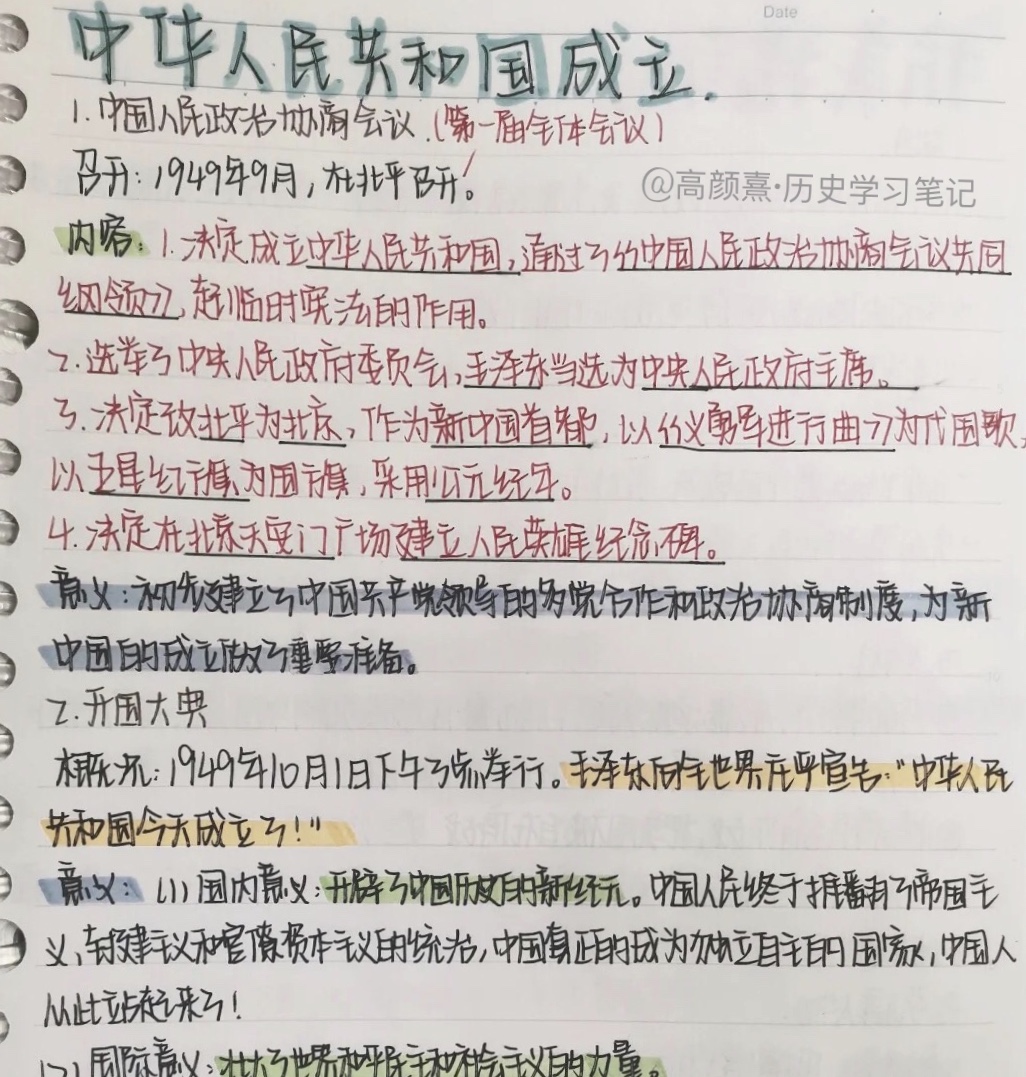 Date
中华人民共和国成立.
1.中国人民政治协商会议.(第一届全体会议)
召开:1949年9月,在北平召开。
@高颜熹·历史学习笔记
内容:1.决定成立中华人民共和国,通过了《中国人民政治协商会议共同
纲领》,起临时宪法的作用。
2.选举了中央人民政府委员会,毛泽东当选为中央人民政府主席。
3.决定改北平为北京,作为新中国首都,以《义勇军进行曲》为代国歌,
以五星红旗为国旗,采用公元纪年。
4.决定在北京天安门广场建立人民英雄纪念碑。
意义:初步建立了中国共产党领导的多党合作和政治协商制度,为新
中国的成立做了重要准备。
2.开国大典
概况:1949年10月1日下午3点举行。毛泽东向全世界庄严宣告:"中华人民
共和国今天成立了!"
意义:(1)国内意义:开辟了中国历史的新纪元。中国人民终于推翻了帝国主
义,封建主义和官僚资本主义的统治,中国真正的成为独立自主的国家,中国人
从此站起来了!
(2)国际意义:壮大了世界和平民主和社会主义的力量。